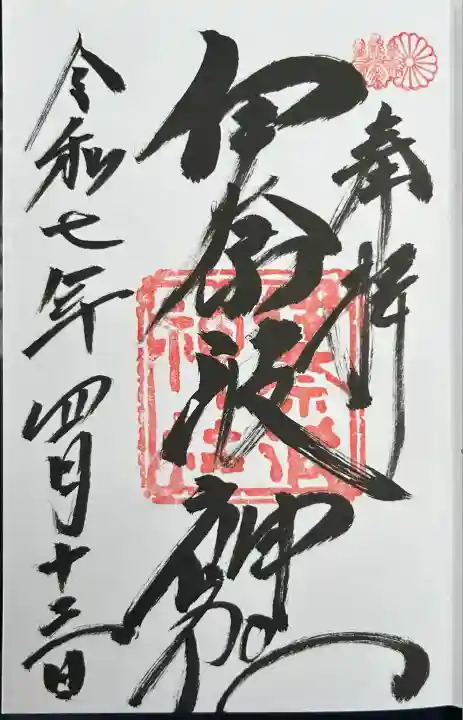 奉拝
伊奈波神社
令和七年四月十三日